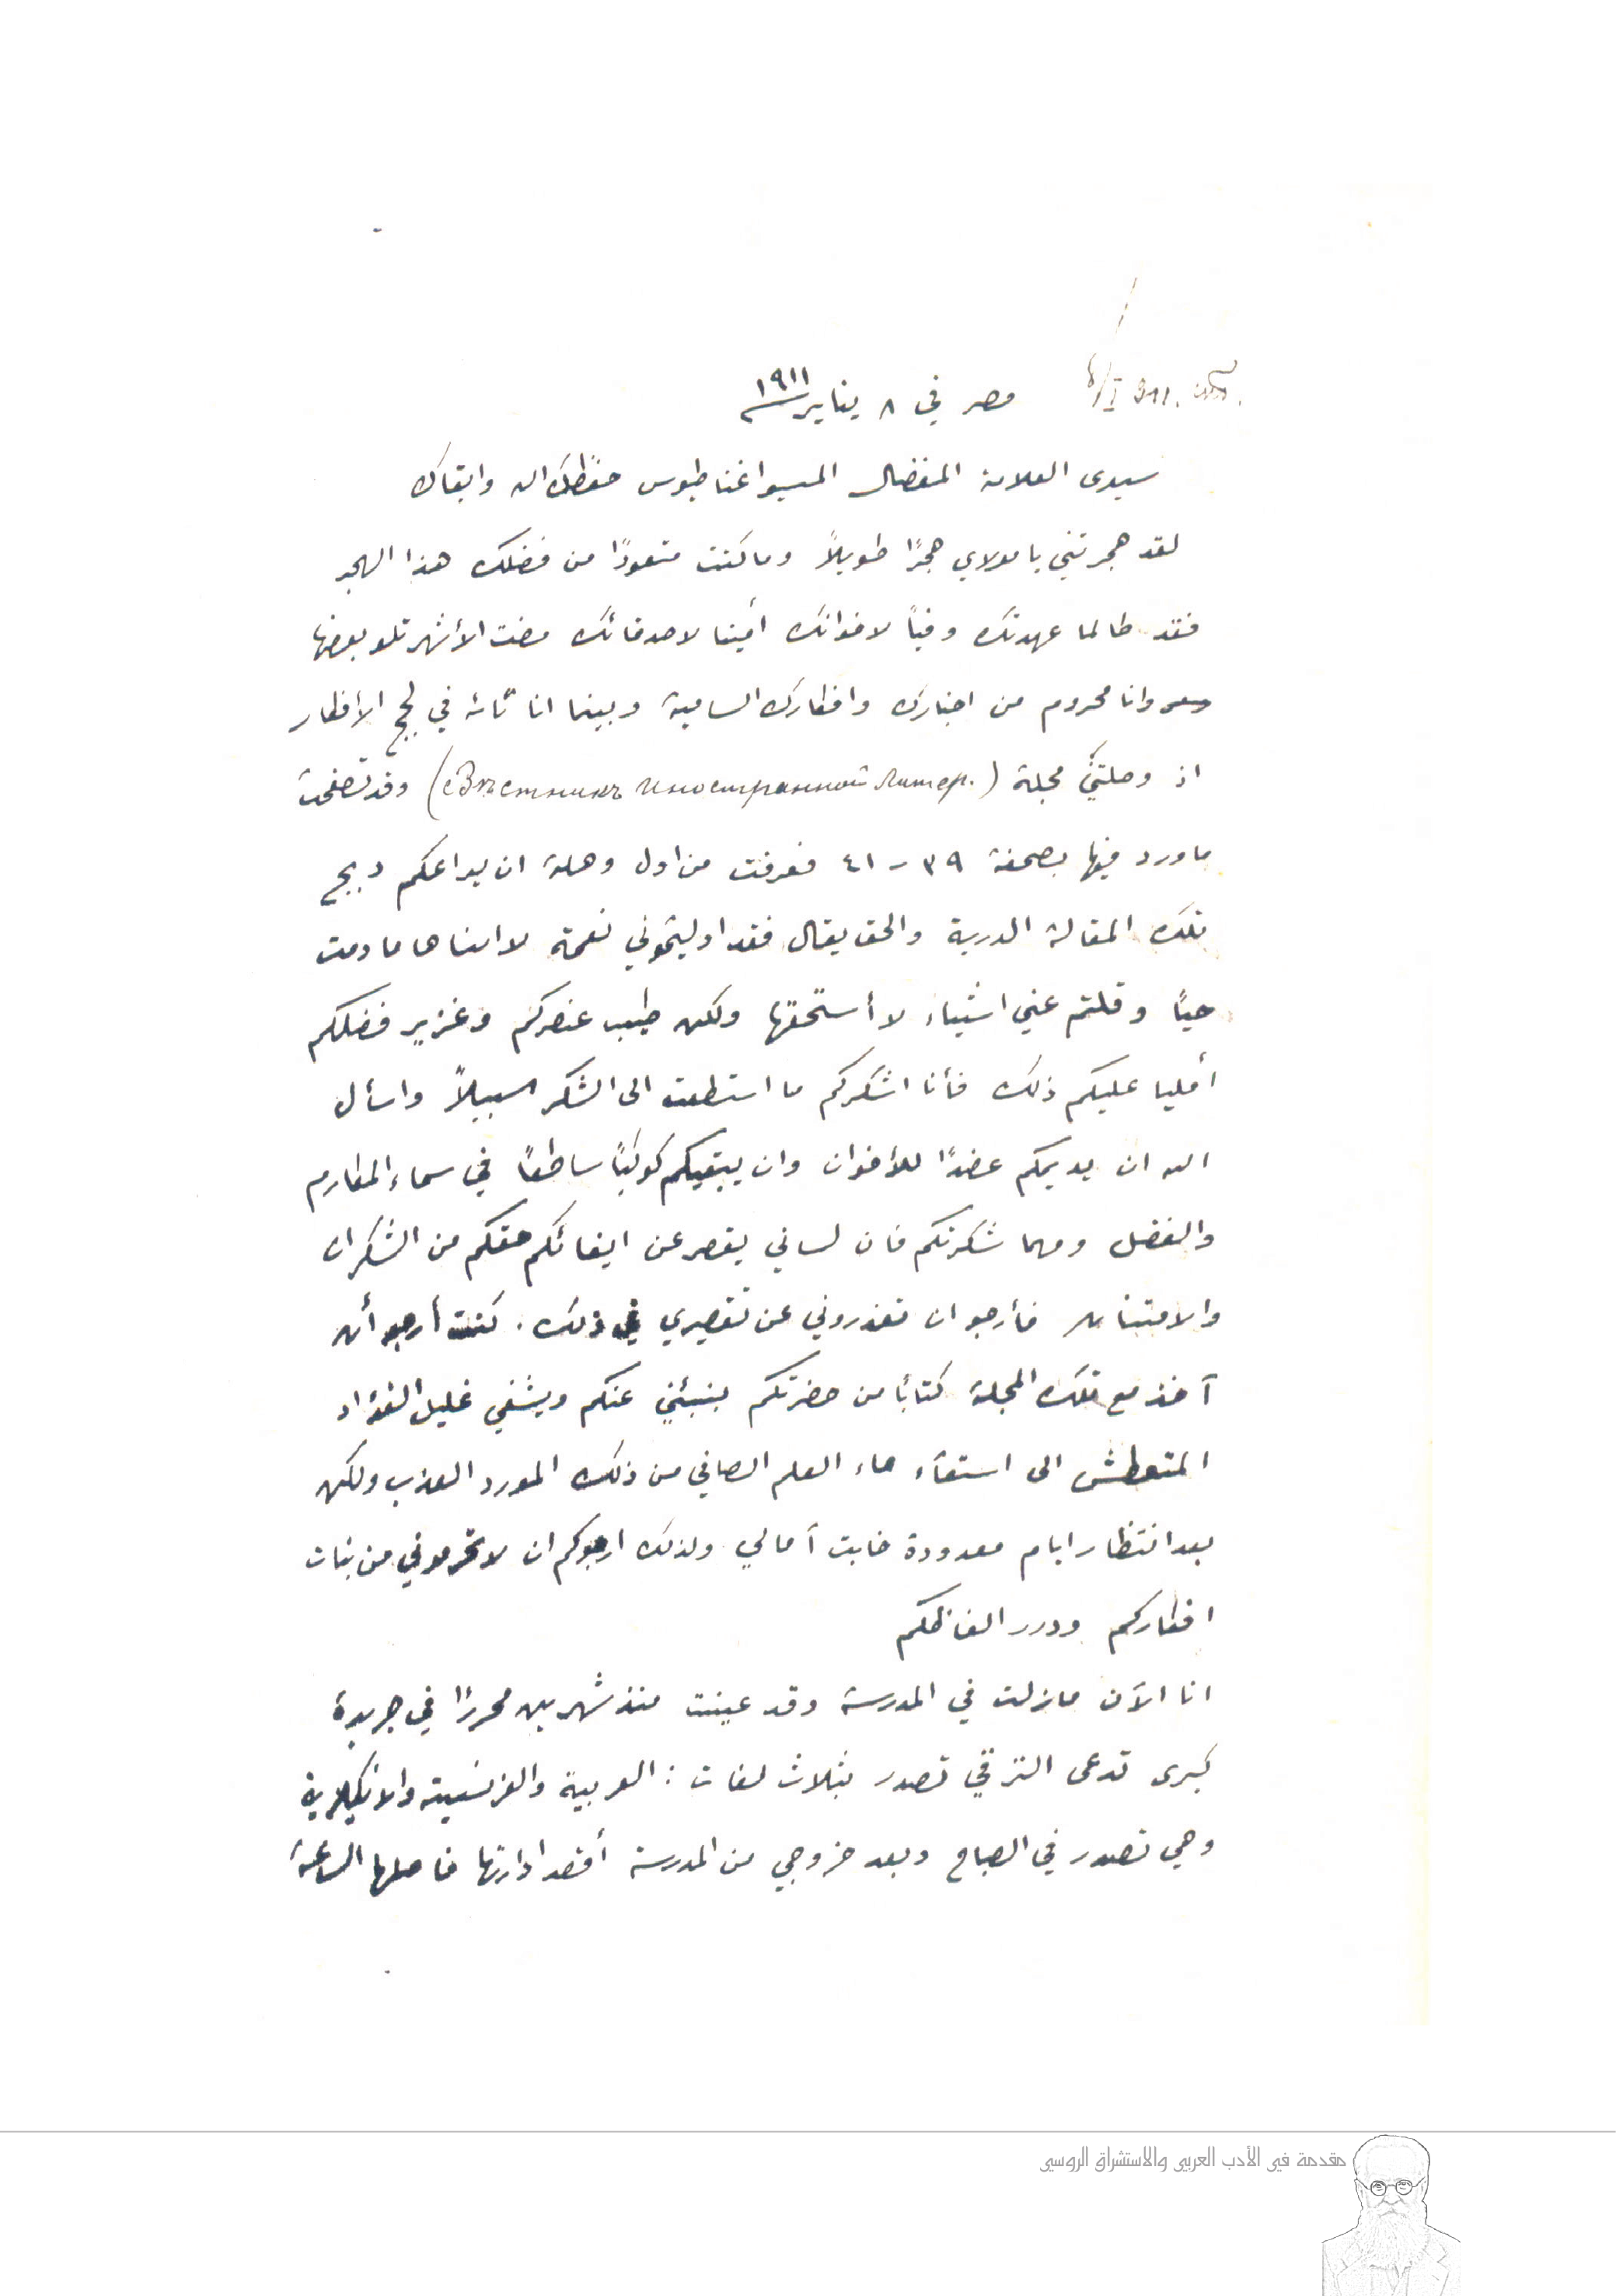 مصر في ٨ يناير ١٩١١
سيدى العلامة المفضال المسيو اغناطيوس حفظك الله وابقاك
لقد هجرتني يا مولاي هجرًا طويلاً وما كنت متعودًا من فضلك هذا الهجر
فقد طالما عهدتك وفيًا لاخوانك أمينا لاصدقائك مضت الأشهر تلو بعضها
وانا محروم من اخبارك وافكارك السامية وبينما انا تائه في لجج الأفكار
اذ وصلتني مجلة (Вѣстникъ Иностранной Литер.) وقد تصفحت
ما ورد فيها بصحفة ٣٩ - ٤١ فعرفت من اول وهلة ان يراعكم دبج
تلك المقالة الدرية والحق يقال فقد اوليتموني نعمة لا انساها ما دمت
حيًا وقلتم عني اشياء لا أستحقها ولكن طيب عنصركم وغزير فضلكم
أمليا عليكم ذلك فأنا اشكركم ما استطعت الى الشكر سبيلاً واسأل
الله ان يديمكم عضدًا للأخوان وان يبقيكم كوكبًا ساطعًا في سماء المكارم
والفضل ومهما شكرتكم فان لساني يقصر عن ايفائكم حقكم من الشكران
والامتنان فأرجو ان تعذروني عن تقصيري في ذلك. كنت أرجو أن
آخذ مع تلك المجلة كتابًا من حضرتكم ينبئني عنكم ويشفي غليل الفؤاد
المتعطش الى استقاء ماء العلم الصافي من ذلك المورد العذب ولكن
بعد انتظار ايام معدودة خابت آمالي ولذلك ارجوكم ان لا تحرموني من بنات
افكاركم ودرر الفاظكم
انا الآن مازلت في المدرسة وقد عينت منذ شهرين محررًا في جريدة
كبرى تدعى الترقي تصدر بثلاث لغات : العربية والفرنسية والانكليزية
وهي تصدر في الصباح وبعد خروجي من المدرسة أقصد ادارتها فاصلها الساعة
مقدمة في الأدب العربي والاستشراق الروسي